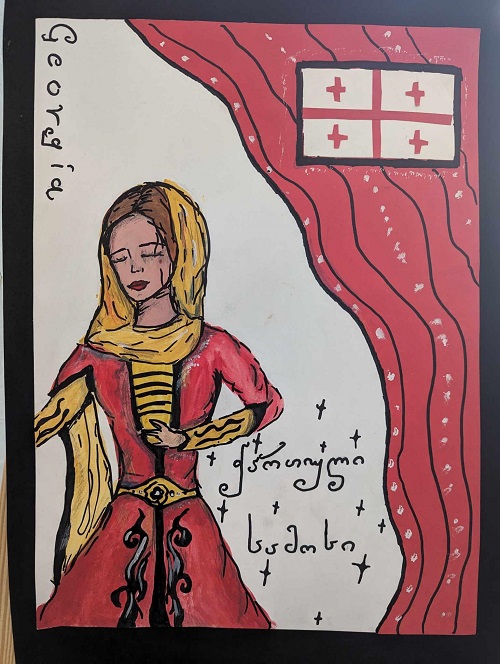 Georgia
ქართული
სამოსი